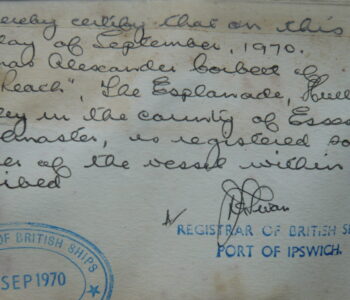 hereby certify that on this
day of September, 1970.
Alexander Corbett of
Reach", The Esplanade, Hull
ley in the county of Esse
master, is registered so
er of the vessel within
ribed
REGISTRAR OF BRITISH S
PORT OF IPSWICH.
OF BRITISH SHIPS
SEP 1970